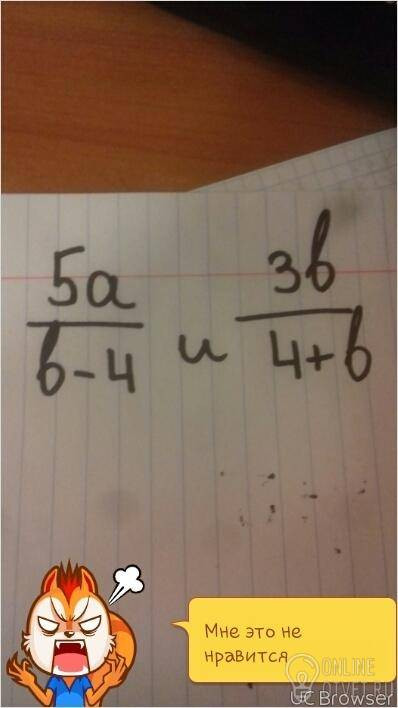 5a/(b-4) и 3b/(4+b)
Мне это не
нравится
ONLINE
OTVET.RU
UC Browser